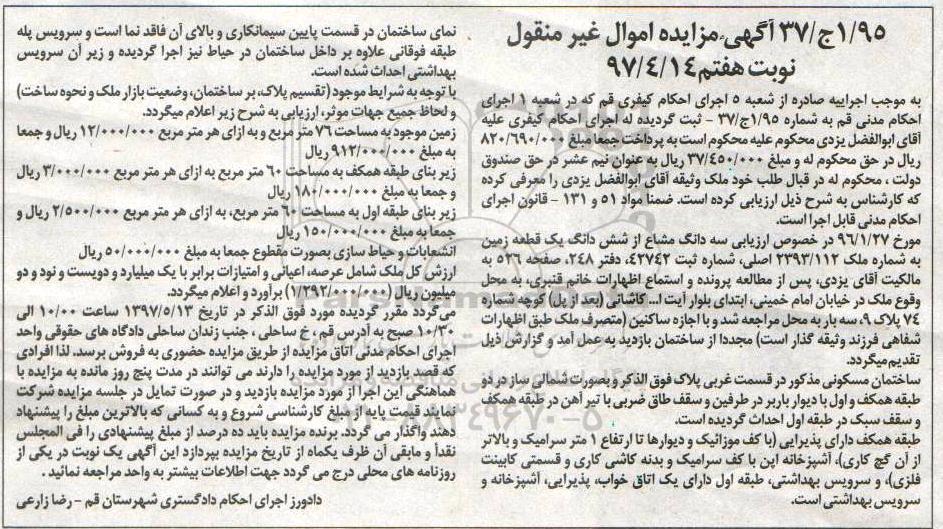 ۱/۹۵ج/۳۷ آگهی مزایده اموال غیر منقول
نوبت هفتم ۹۷/۴/۱۴
به موجب اجراییه صادره از شعبه ۵ اجرای احکام کیفری قم که در شعبه ۱ اجرای
احکام مدنی قم به شماره ۱/۹۵ج/۳۷ - ثبت گردیده له اجرای احکام کیفری علیه
آقای ابوالفضل یزدی محکوم علیه محکوم است به پرداخت جمعا مبلغ ۸۲۰/۶۹۰/۰۰۰
ریال در حق محکوم له و مبلغ ۳۷/۴۵۰/۰۰۰ ریال به عنوان نیم عشر در حق صندوق
دولت ، محکوم له در قبال طلب خود ملک وثیقه آقای ابوالفضل یزدی را معرفی کرده
که کارشناس به شرح ذیل ارزیابی کرده است. ضمنا مواد ۵۱ و ۱۳۱ - قانون اجرای
احکام مدنی قابل اجرا است.
مورخ ۹۶/۱/۲۷ در خصوص ارزیابی سه دانگ مشاع از شش دانگ یک قطعه زمین
به شماره ملک ۲۳۹۳/۱۱۲ اصلی، شماره ثبت ۴۲۷۴۲، دفتر ۲۴۸، صفحه ۵۲۶ به
مالکیت آقای یزدی، پس از مطالعه پرونده و استماع اظهارات خانم قنبری، به محل
وقوع ملک در خیابان امام خمینی، ابتدای بلوار آیت ا... کاشانی (بعد از پل) کوچه شماره
۷۴ پلاک ۹، سه بار به محل مراجعه شد و با اجازه ساکنین (متصرف ملک طبق اظهارات
شفاهی فرزند وثیقه گذار است) مجددا از ساختمان بازدید به عمل آمد و گزارش ذیل
تقدیم میگردد.
ساختمان مسکونی مذکور در قسمت غربی پلاک فوق الذکر و بصورت شمالی ساز در دو
طبقه همکف و اول با دیوار باربر در طرفین و سقف طاق ضربی با تیر آهن در طبقه همکف
و سقف سبک در طبقه اول احداث گردیده است.
طبقه همکف دارای پذیرایی (با کف موزائیک و دیوارها تا ارتفاع ۱ متر سرامیک و بالاتر
از آن گچ کاری)، آشپزخانه اپن با کف سرامیک و بدنه کاشی کاری و قسمتی کابینت
فلزی)، و سرویس بهداشتی، طبقه اول دارای یک اتاق خواب، پذیرایی، آشپزخانه و
سرویس بهداشتی است.
نمای ساختمان در قسمت پایین سیمانکاری و بالای آن فاقد نما است و سرویس پله
طبقه فوقانی علاوه بر داخل ساختمان در حیاط نیز اجرا گردیده و زیر آن سرویس
بهداشتی احداث شده است.
با توجه به شرایط موجود (تقسیم پلاک، بر ساختمان، وضعیت بازار ملک و نحوه ساخت)
و لحاظ جمیع جهات موثر، ارزیابی به شرح زیر اعلام میگردد.
زمین موجود به مساحت ۷۶ متر مربع و به ازای هر متر مربع ۱۲/۰۰۰/۰۰۰ ریال و جمعا
به مبلغ ۹۱۲/۰۰۰/۰۰۰ ریال
زیر بنای طبقه همکف به مساحت ۶۰ متر مربع به ازای هر متر مربع ۳/۰۰۰/۰۰۰ ریال
و جمعا به مبلغ ۱۸۰/۰۰۰/۰۰۰ ریال
زیر بنای طبقه اول به مساحت ۶۰ متر مربع، به ازای هر متر مربع ۲/۵۰۰/۰۰۰ ریال و
جمعا به مبلغ ۱۵۰/۰۰۰/۰۰۰ ریال
انشعابات و حیاط سازی بصورت مقطوع جمعا به مبلغ ۵۰/۰۰۰/۰۰۰ ریال
ارزش کل ملک شامل عرصه، اعیانی و امتیازات برابر با یک میلیارد و دویست و نود و دو
میلیون ریال (۱/۲۹۲/۰۰۰/۰۰۰) برآورد و اعلام میگردد.
می‌گردد مقرر گردیده مورد فوق الذکر در تاریخ ۱۳۹۷/۵/۱۳ ساعت ۱۰/۰۰ الی
۱۰/۳۰ صبح به آدرس قم ، خ ساحلی ، جنب زندان ساحلی دادگاه های حقوقی واحد
اجرای احکام مدنی اتاق مزایده از طریق مزایده حضوری به فروش برسد. لذا افرادی
که قصد بازدید از مورد مزایده را دارند می توانند در مدت پنج روز مانده به مزایده با
هماهنگی این اجرا از مورد مزایده بازدید و در صورت تمایل در جلسه مزایده شرکت
نمایند قیمت پایه از مبلغ کارشناسی شروع و به کسانی که بالاترین مبلغ را پیشنهاد
دهند واگذار می گردد. برنده مزایده باید ده درصد از مبلغ پیشنهادی را فی المجلس
نقداً و مابقی آن ظرف یکماه از تاریخ مزایده بپردازد این آگهی یک نوبت در یکی از
روزنامه های محلی درج می گردد جهت اطلاعات بیشتر به واحد مراجعه نمائید .
دادورز اجرای احکام دادگستری شهرستان قم - رضا زارعی